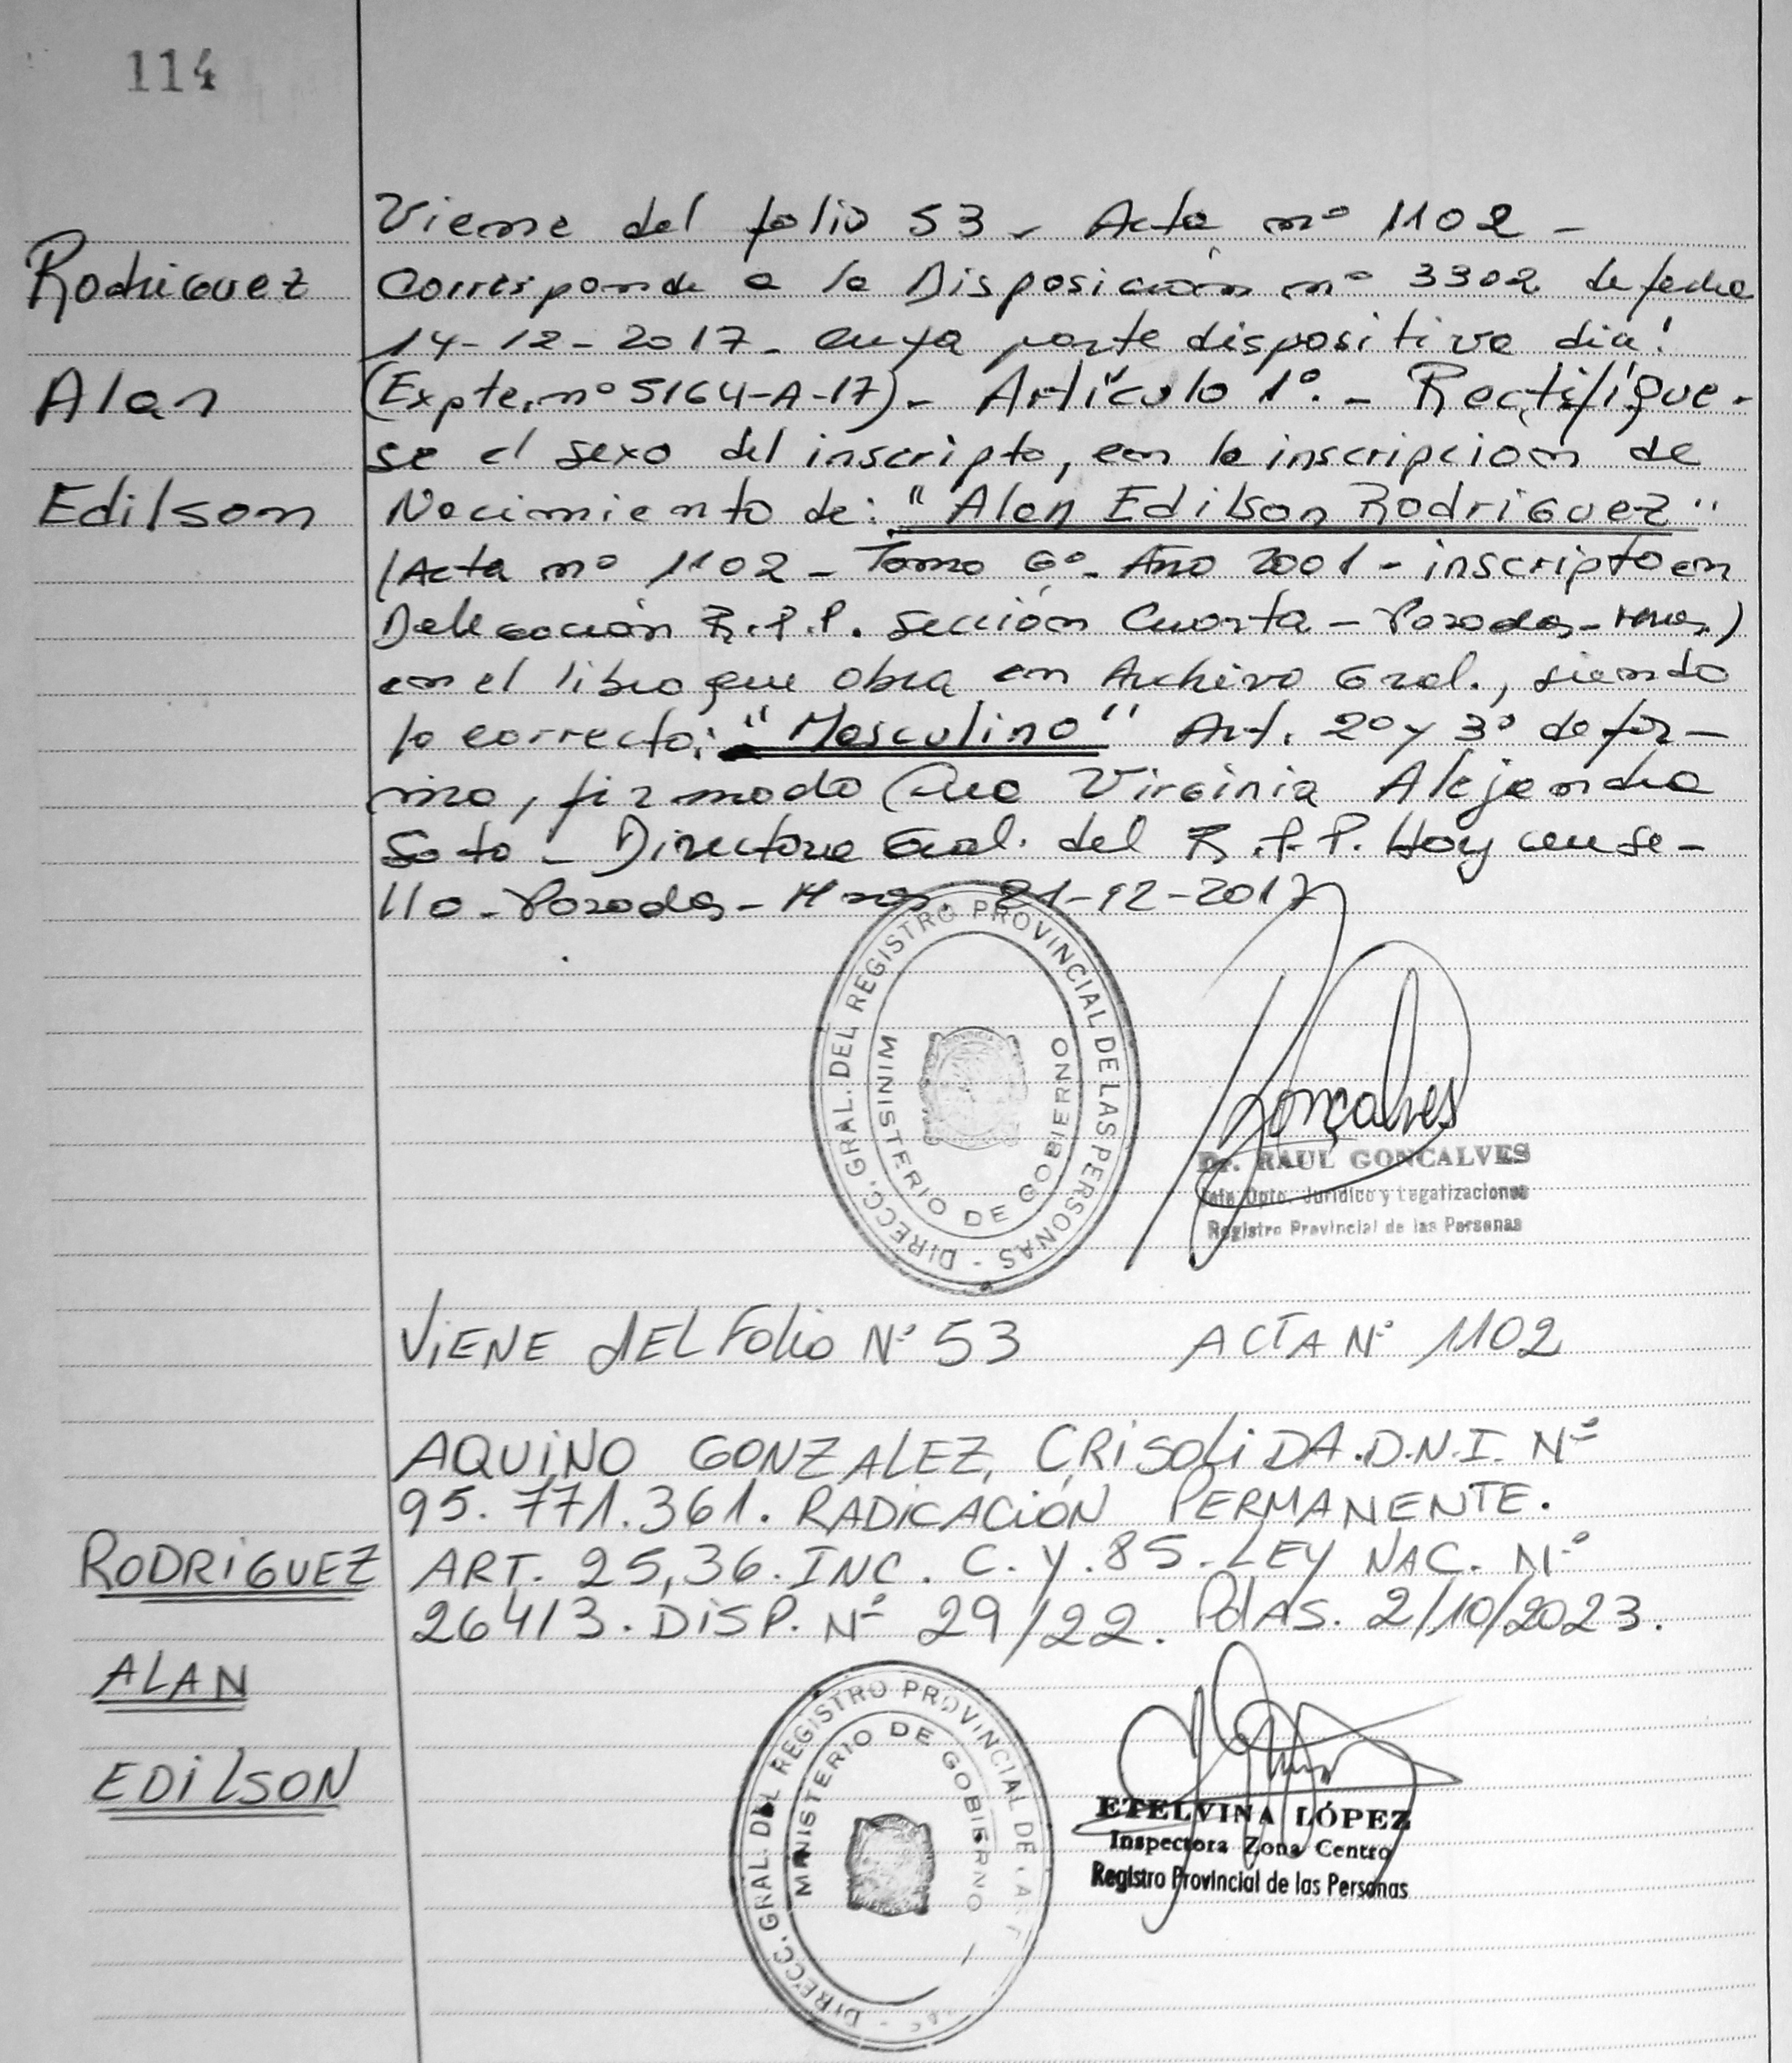 114
Viene del folio 53 - Acta nº 1102 -
Rodriguez
Corresponde a la Disposición nº 3302 de fecha
14-12-2017- cuya parte dispositiva dice:
Alan
(Expte, nº 5164-A-17)- Artículo 1º.- Rectifíque-
se el sexo del inscripto, en la inscripcion de
Edilson
Nacimiento de: "Alan Edilson Rodriguez"
(Acta nº 1102 - Tomo 6º- Año 2001 - inscripto en
Delegación R.P.P. Sección Cuarta - Posadas - Mnes.)
en el libro que obra en Archivo Gral., siendo
lo correcto: "Masculino" Art. 2º y 3º de for-
ma, firmado Virginia Alejandra
Soto - Directora Gral. del R.P.P. Hoy
llo - Posadas - Mnes. 21-12-2017
DIRECC. GRAL. DEL REGISTRO PROVINCIAL DE LAS PERSONAS -
MINISTERIO DE GOBIERNO
Gonçalves
Dr. RAUL GONCALVES
Jefe Dpto. Jurídico y Legalizaciones
Registro Provincial de las Personas
ViENE dEL Folio Nº 53 ACTA Nº 1102
AQUiNO GONZALEZ, CRiSOLiDA. D.N.I. Nº
95.771.361. RADiCACiÓN PERMANENTE.
RODRiGUEZ
ART. 25,36. INC. C. Y. 85. LEY NAC. Nº
26413. DiSP. Nº 29/22. PdAS. 2/10/2023.
ALAN
EDiLSON
DIRECC. GRAL. DEL REGISTRO PROVINCIAL DE
MINISTERIO DE GOBIERNO
ETELVINA LÓPEZ
Inspectora Zona Centro
Registro Provincial de las Personas